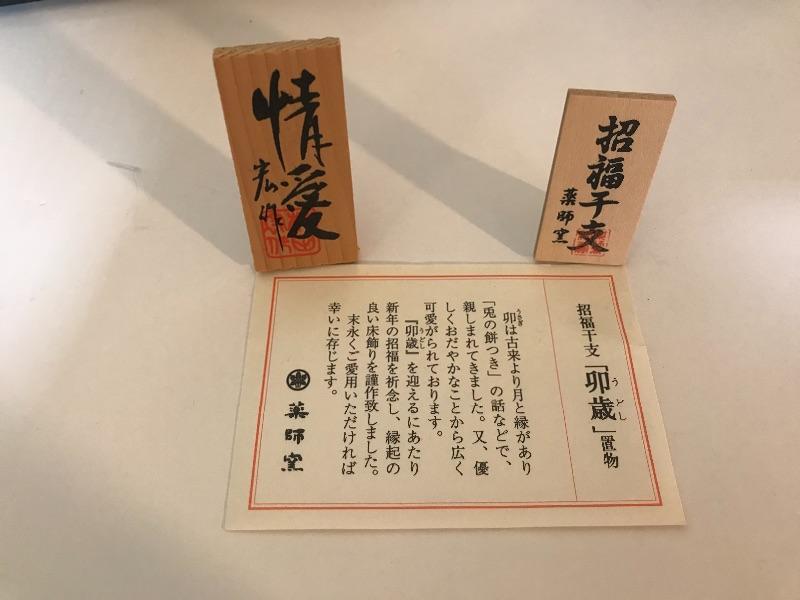 情愛
宏作
招福干支
薬師窯
招福干支「卯歳」置物
うどし
卯は古来より月と縁があり
うさぎ
「兎の餅つき」の話などで、
親しまれてきました。又、優
しくおだやかなことから広く
可愛がられております。
『卯歳』を迎えるにあたり
うどし
新年の招福を祈念し、縁起の
良い床飾りを謹作致しました。
末永くご愛用いただければ
幸いに存じます。
薬師窯